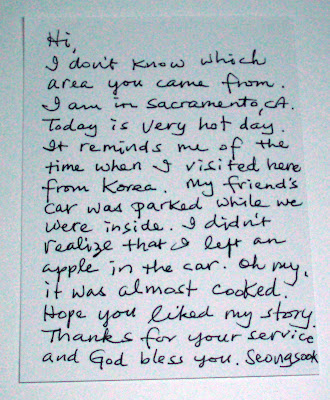 Hi,
I don't know which
area you came from.
I am in Sacramento, CA.
Today is very hot day.
It reminds me of the
time when I visited here
from Korea. My friend's
car was parked while we
were inside. I didn't
realize that I left an
apple in the car. Oh my,
it was almost cooked.
Hope you liked my story.
Thanks for your service
and God bless you. Seongsook